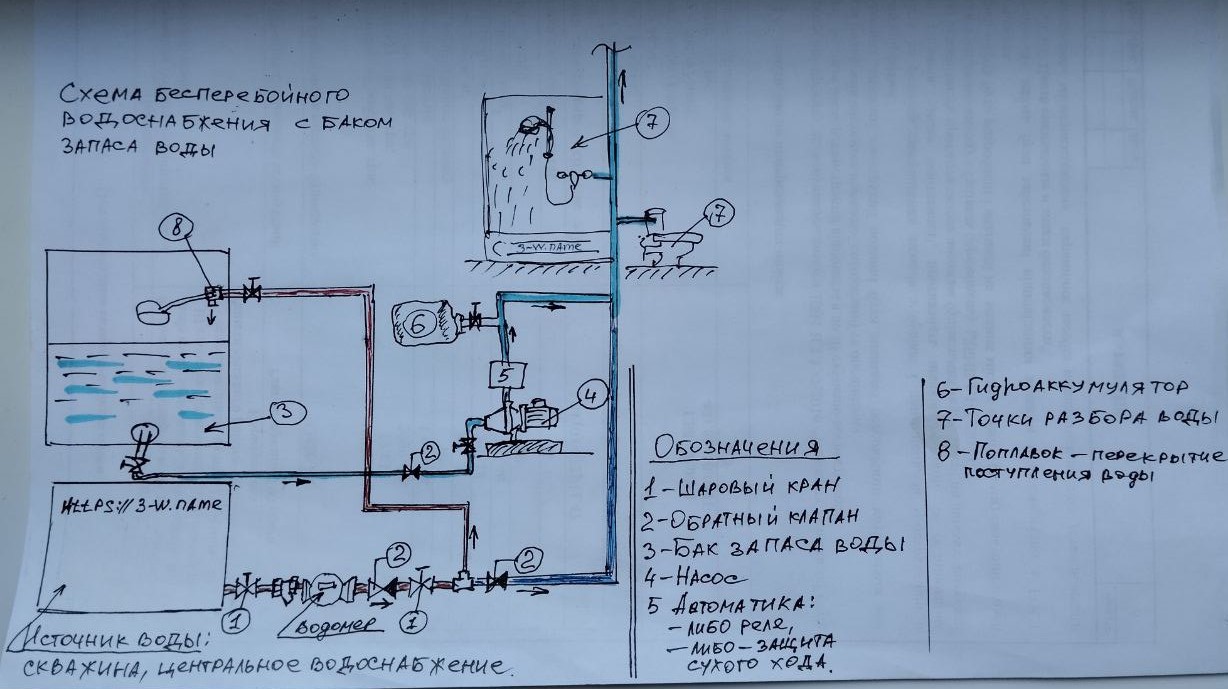 Схема бесперебойного
водоснабжения с баком
запаса воды
8
7
3-w.name
7
6
5
4
3
2
HttPs:// 3-w.name
2
2
1
Водомер
1
Источник воды:
скважина, центральное водоснабжение.
Обозначения
1-Шаровый кран
2-Обратный клапан
3-Бак запаса воды
4-Насос
5 Автоматика:
-либо реле,
-либо-защита
сухого хода.
6-Гидроаккумулятор
7-Точки разбора воды
8-Поплавок-перекрытие
поступления воды